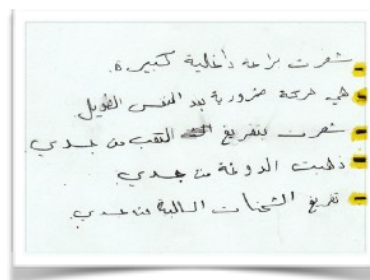 - شعرت براحة داخلية كبيرة.
- هي حركة ضرورية بعد النفس الطويل
- شعرت بتفريغ التعب من جسدي
- ذهبت الدوخة من جسدي
- تفريغ الشحنات السالبة من جسدي